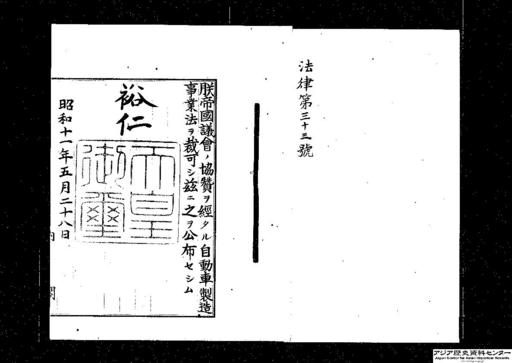 法律第三十三號
朕帝國議會ノ協贊ヲ經タル自動車製造
事業法ヲ裁可シ玆ニ之ヲ公布セシム
裕仁
天皇
御璽
昭和十一年五月二十八日
內閣
アジア歴史資料センター
Japan Center for Asian Historical Records